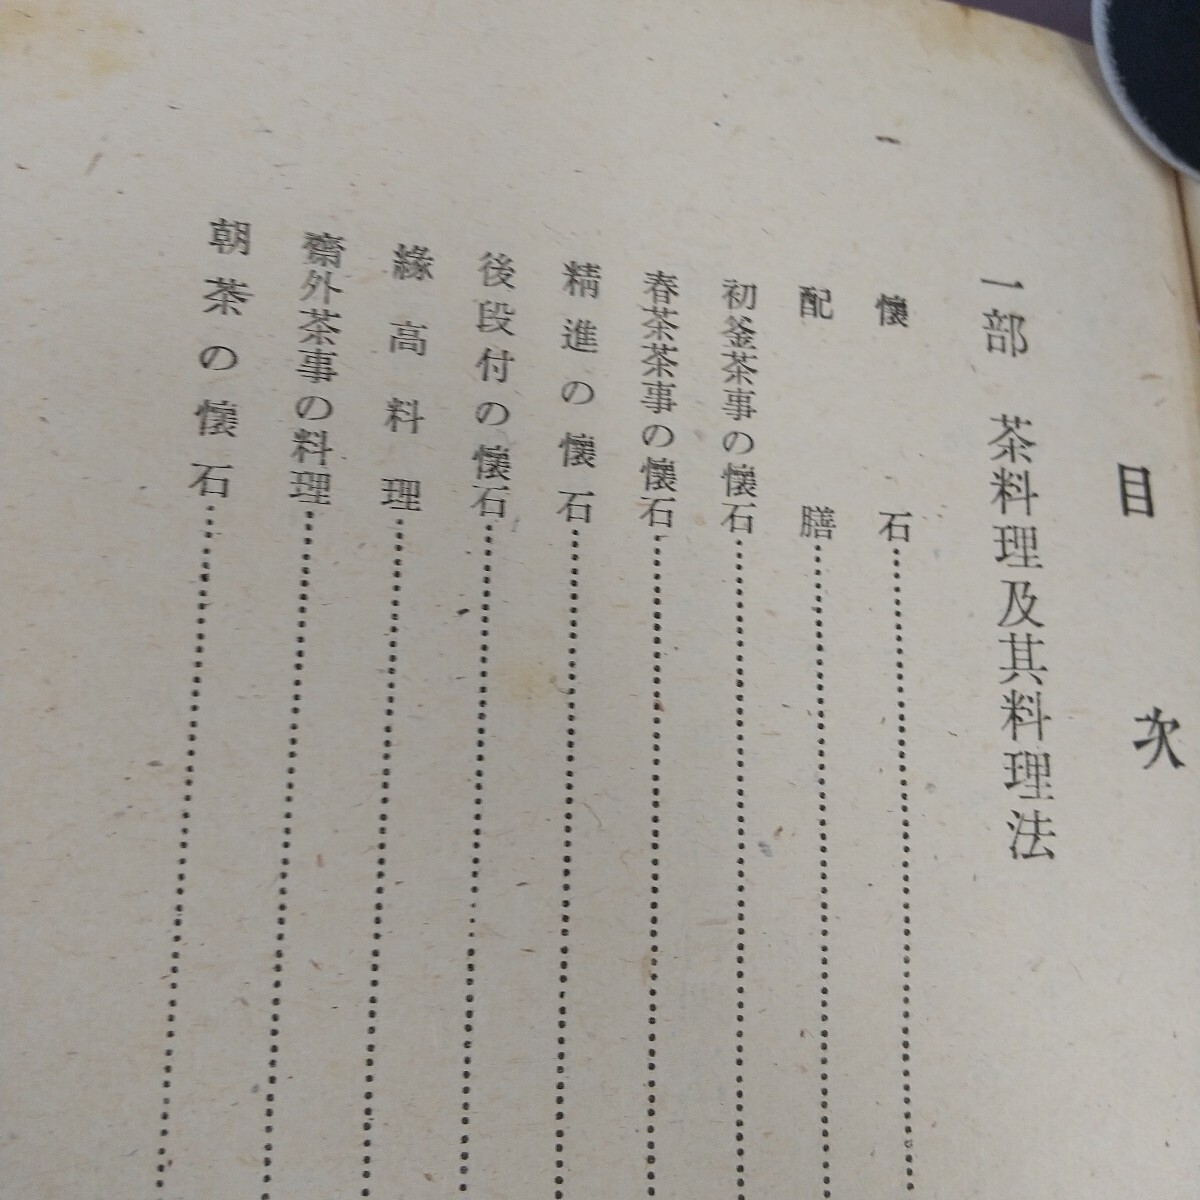 目次
一部　茶料理及其料理法
懐石
配膳
初釜茶事の懐石
春茶茶事の懐石
精進の懐石
後段付の懐石
縁高料理
齋外茶事の料理
朝茶の懐石